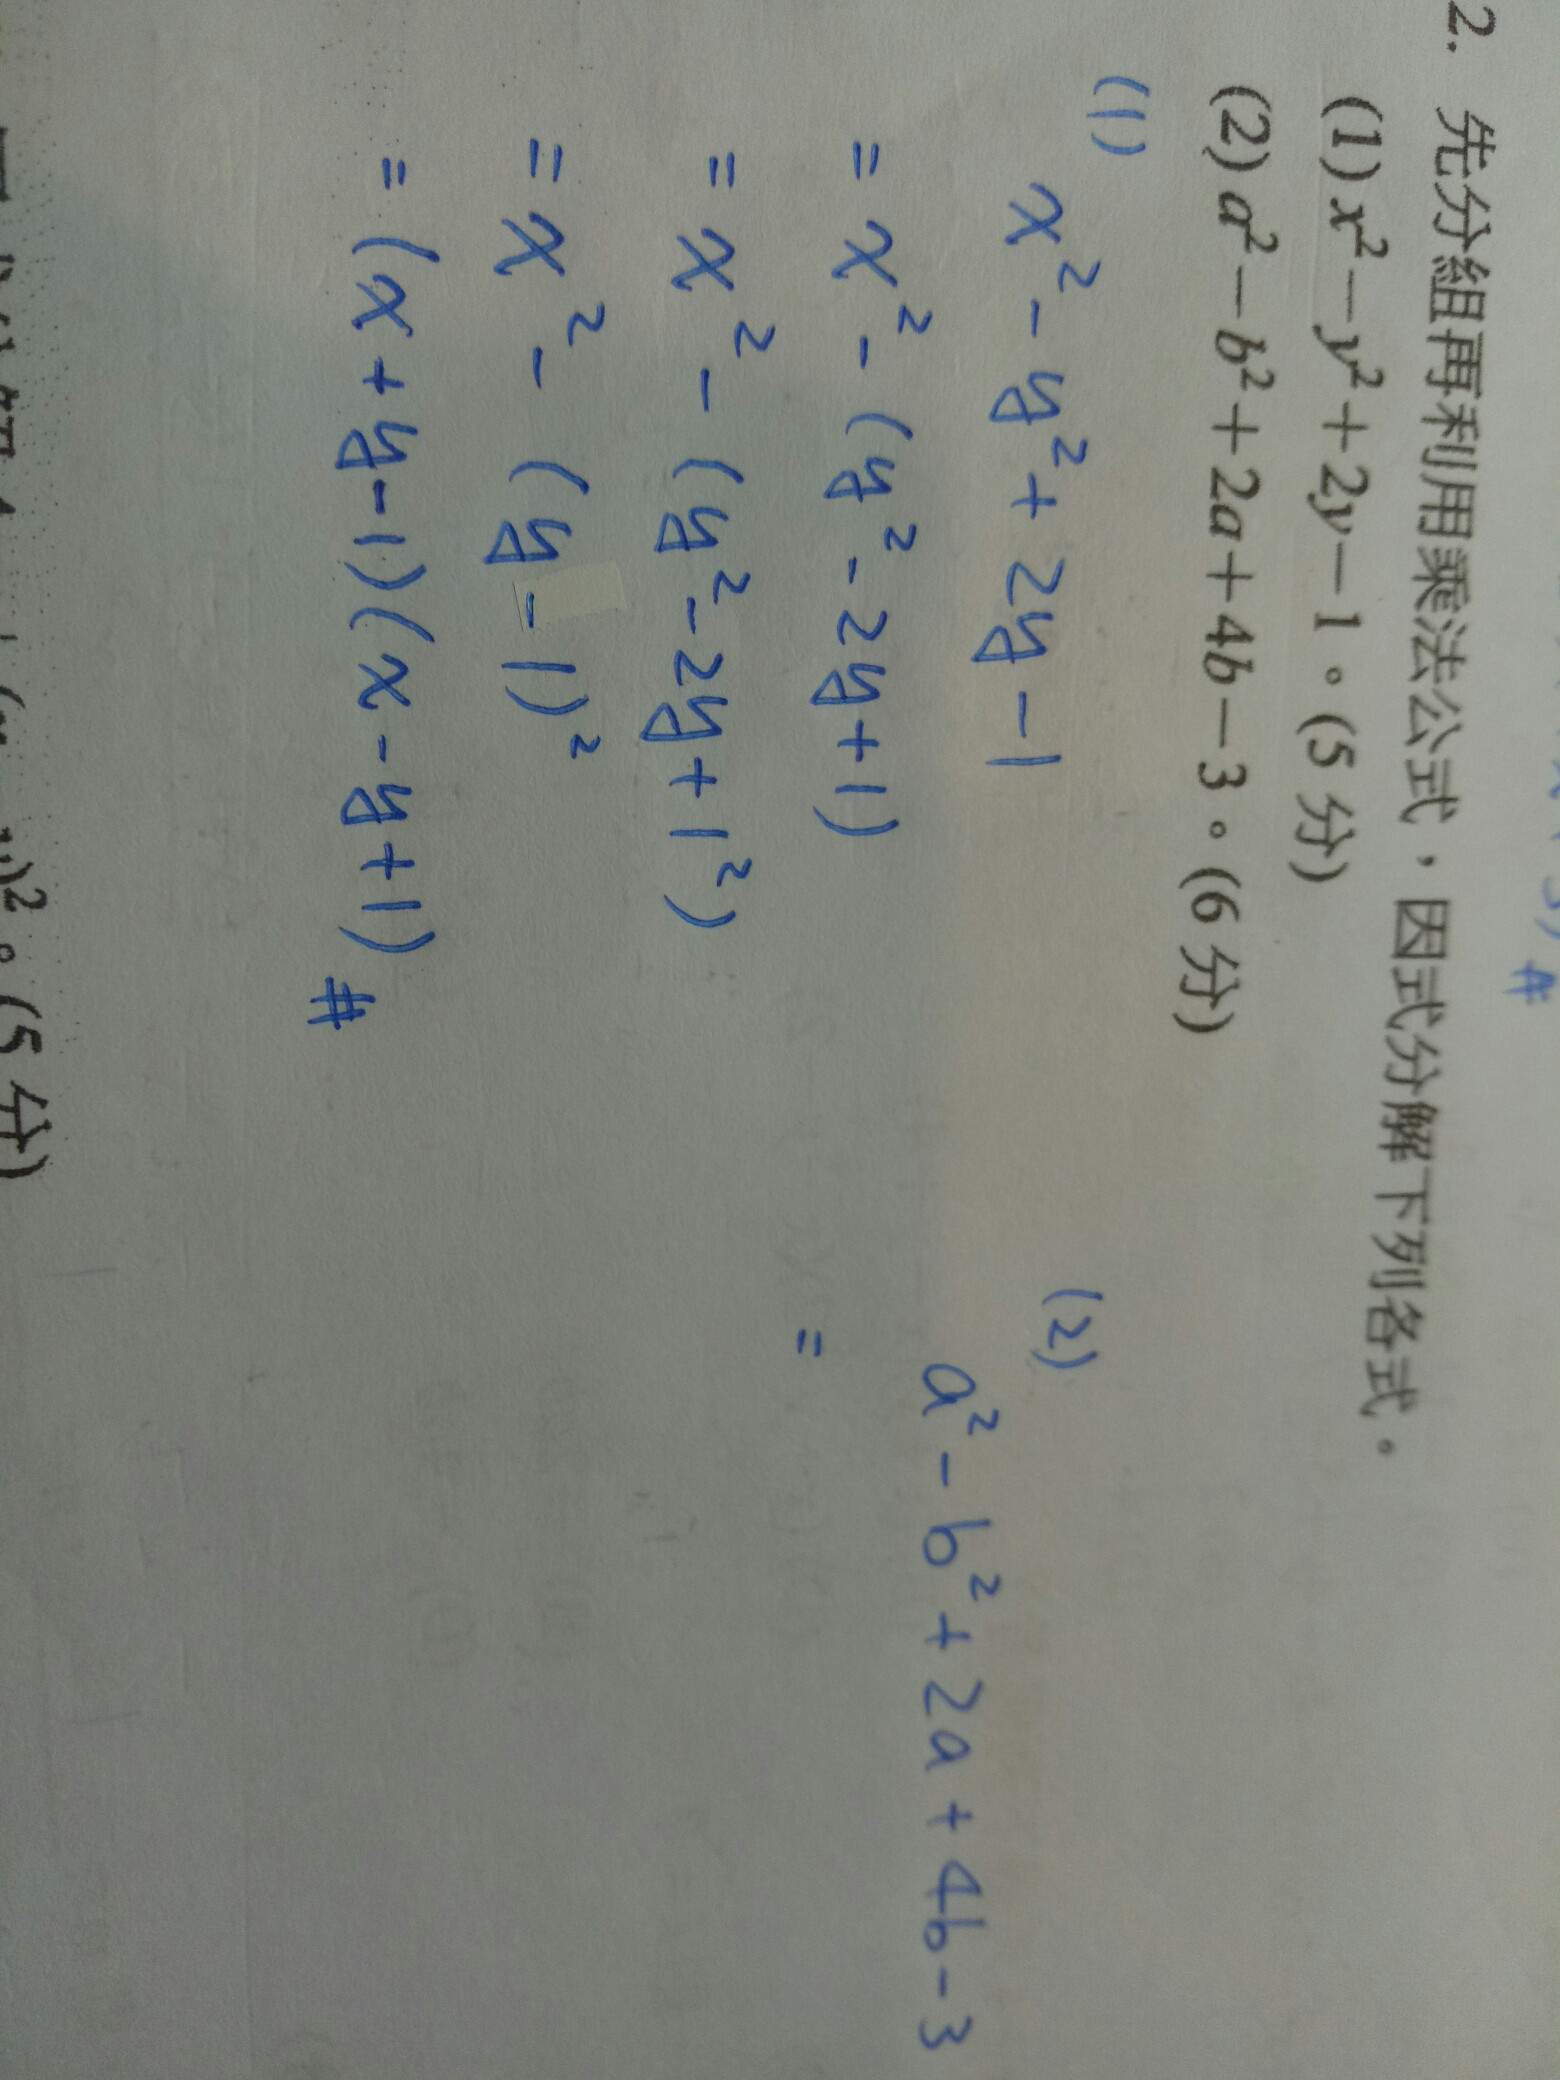 2. 先分組再利用乘法公式，因式分解下列各式。
(1) x²－y²＋2y－1。(5分)
(2) a²－b²＋2a＋4b－3。(6分)
(1)
x² - y² + 2y - 1
= x² - (y² - 2y + 1)
= x² - (y² - 2y + 1²)
= x² - (y - 1)²
= (x + y - 1)(x - y + 1) #
(2)
a² - b² + 2a + 4b - 3
=
)²。(5分)